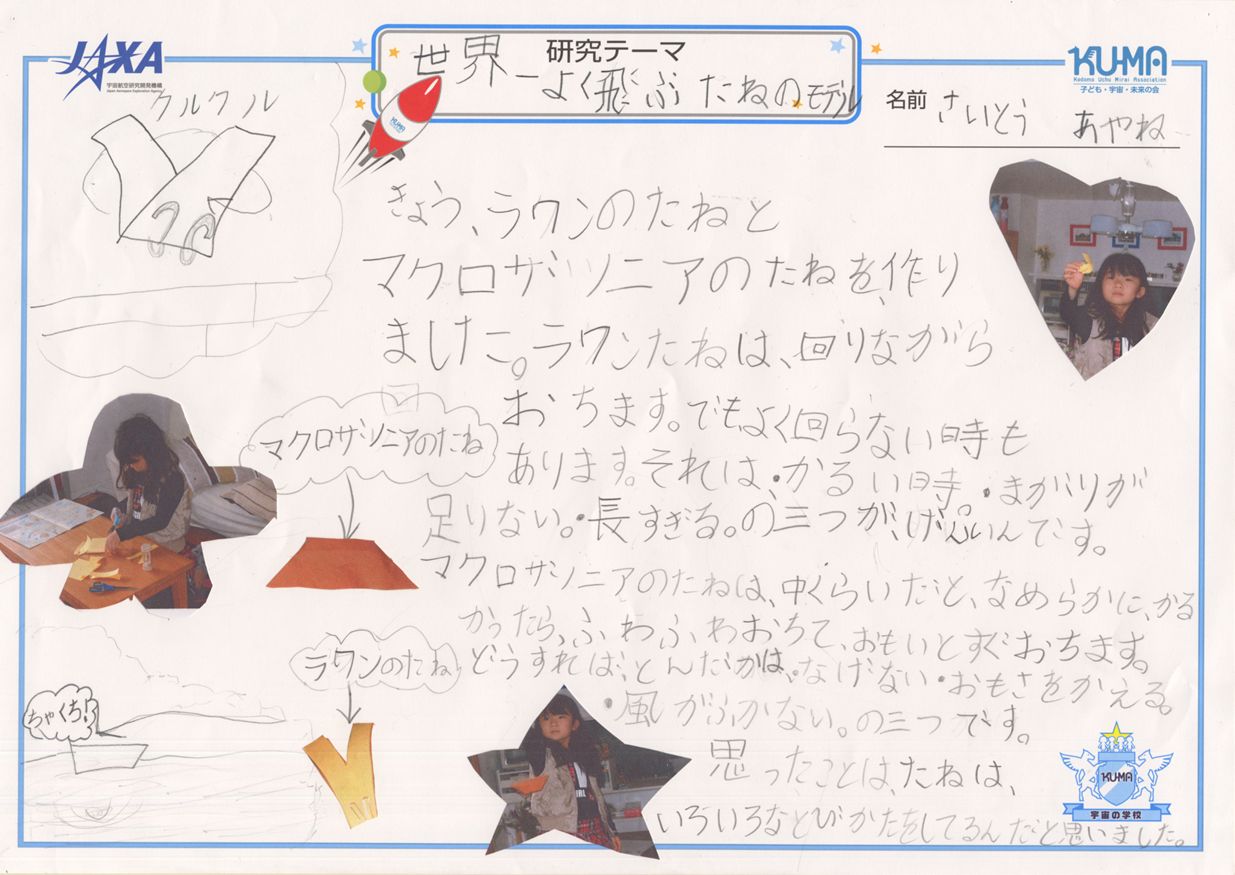 JAXA
宇宙航空研究開発機構
Japan Aerospace Exploration Agency
研究テーマ
世界一よく飛ぶたねのモデル
KU-MA
Kodomo Uchu Mirai Association
子ども・宇宙・未来の会
名前 さいとう あやね
クルクル
きょう、ラワンのたねと
マクロザソニアのたねを、作り
ました。ラワンたねは、回りながら
おちます。でも、よく回らない時も
あります。それは、・かるい時。・まがりが
足りない。・長すぎる。の三つが、げんいんです。
マクロザソニアのたねは、中くらいだと、なめらかに、かる
かったら、ふわふわおちて、おもいとすぐおちます。
どうすれば、とんだかは、・なげない・おもさをかえる。
・風がふかない。の三つです。
思ったことは、たねは、
いろいろなとびかたをしてるんだと思いました。
マクロザソニアのたね
ラワンのたね
ちゃくち!
KU-MA
KU-MA
宇宙の学校